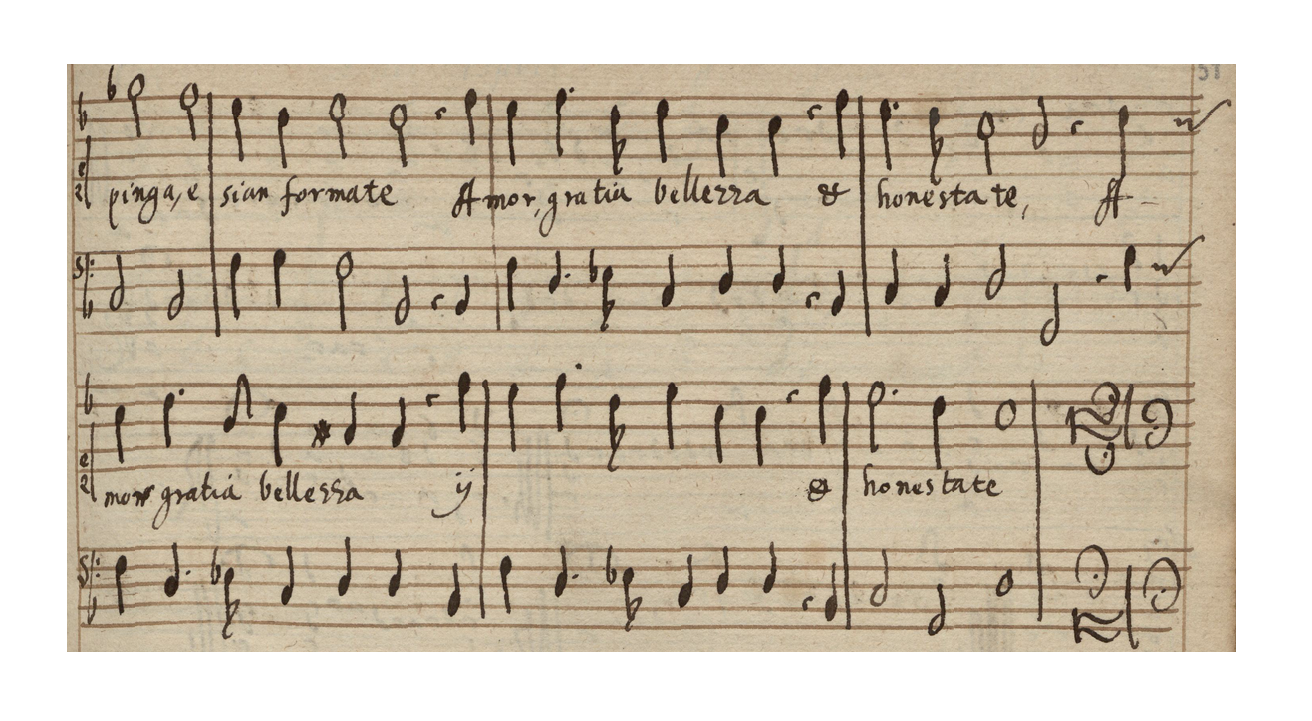 51
pinga, e sian formate Amor, gratia bellezza & honestate, A-
mor gratia bellezza ij & honestate